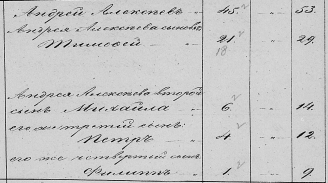 Андрей Алексѣевъ „ 45 „ 53.
Андрея Алексѣева сыновья
Тимофей „ 21 „ 29.
18
Андрея Алексѣева второй
сынъ Михайла „ 6 „ 14.
его же третій сынъ
Петръ „ 4 „ 12.
его же четвертый сынъ
Филиппъ „ 1 „ 9.